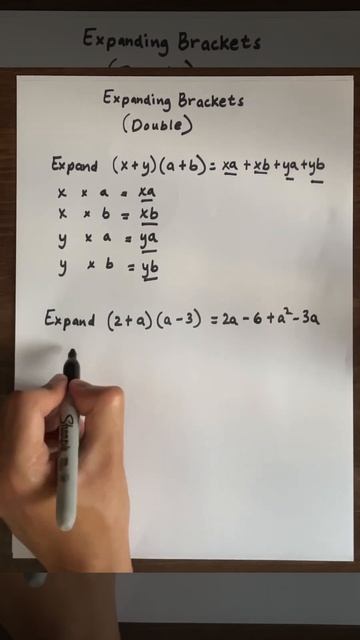 Expanding Brackets
Expanding Brackets
(Double)
Expand (x+y)(a+b) = xa + xb + ya + yb
x × a = xa
x × b = xb
y × a = ya
y × b = yb
Expand (2+a)(a-3) = 2a - 6 + a² - 3a
Sharpie